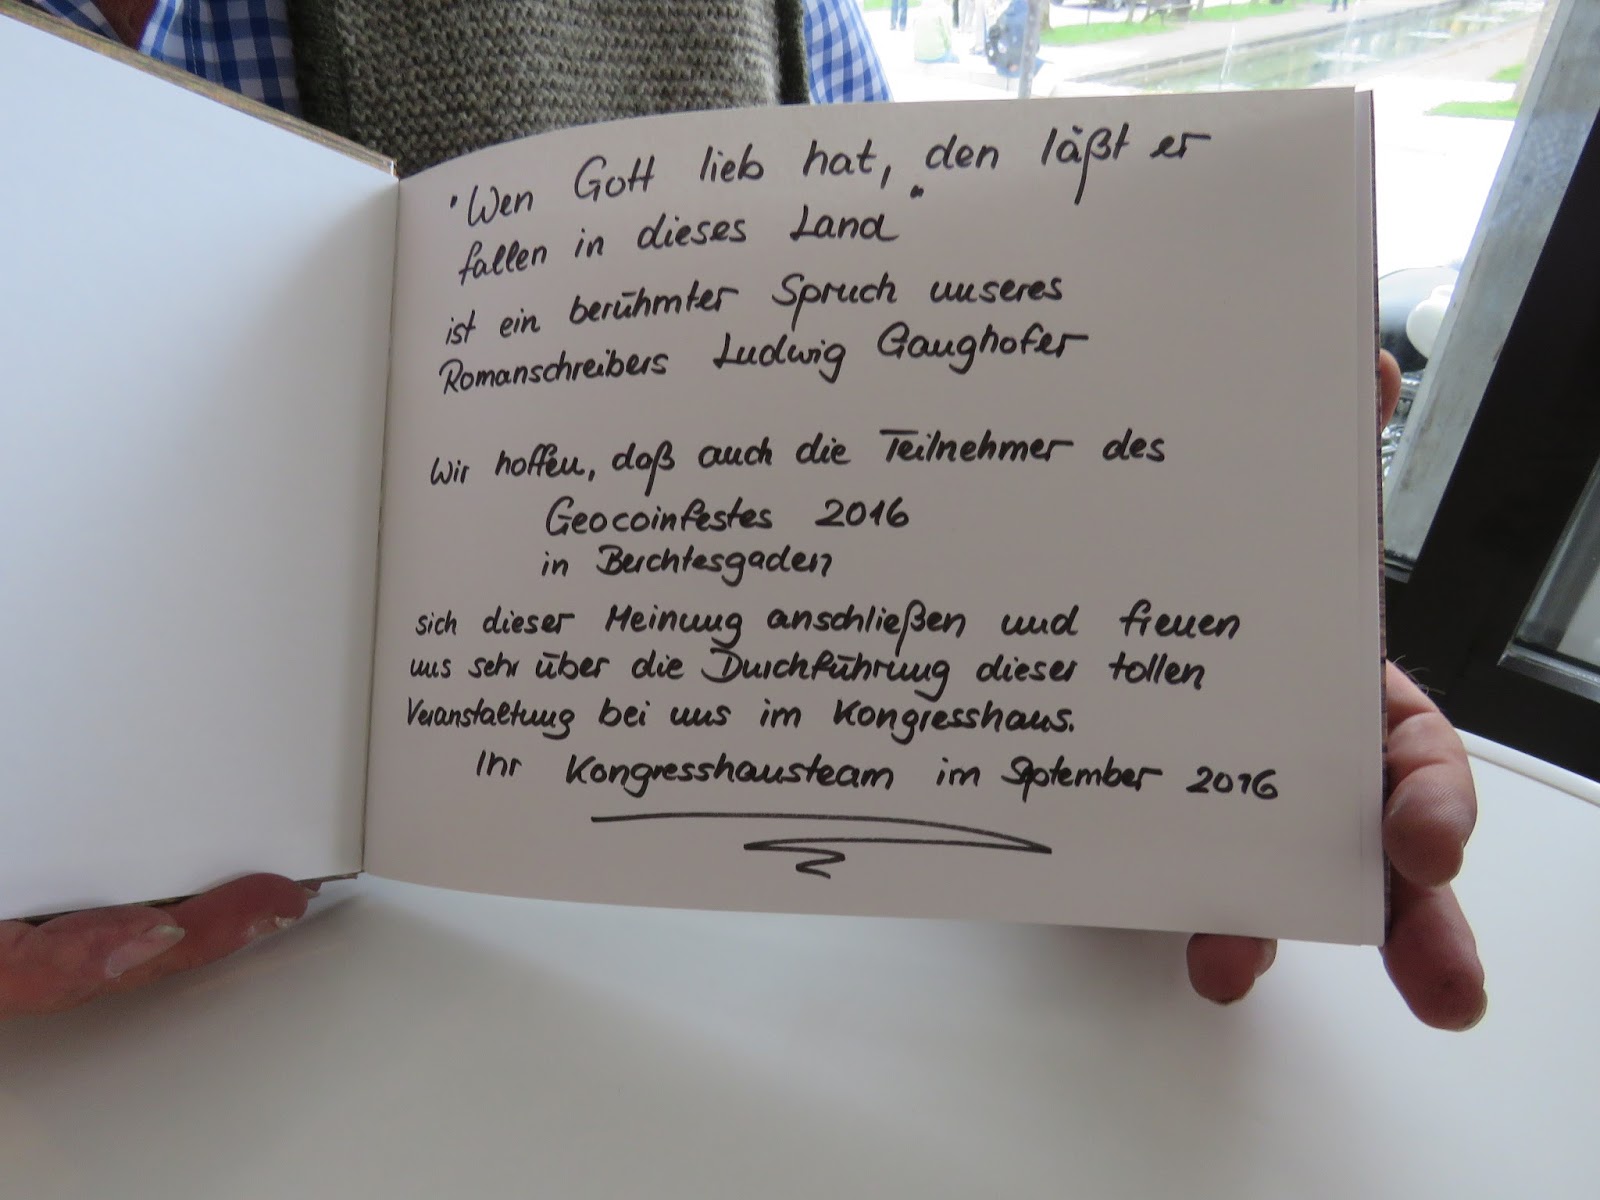 "Wen Gott lieb hat, den läßt er
fallen in dieses Land"
ist ein berühmter Spruch unseres
Romanschreibers Ludwig Gaughofer
Wir hoffen, daß auch die Teilnehmer des
Geocoinfestes 2016
in Berchtesgaden
sich dieser Meinung anschließen und freuen
uns sehr über die Durchführung dieser tollen
Veranstaltung bei uns im Kongresshaus.
Ihr Kongresshausteam im September 2016